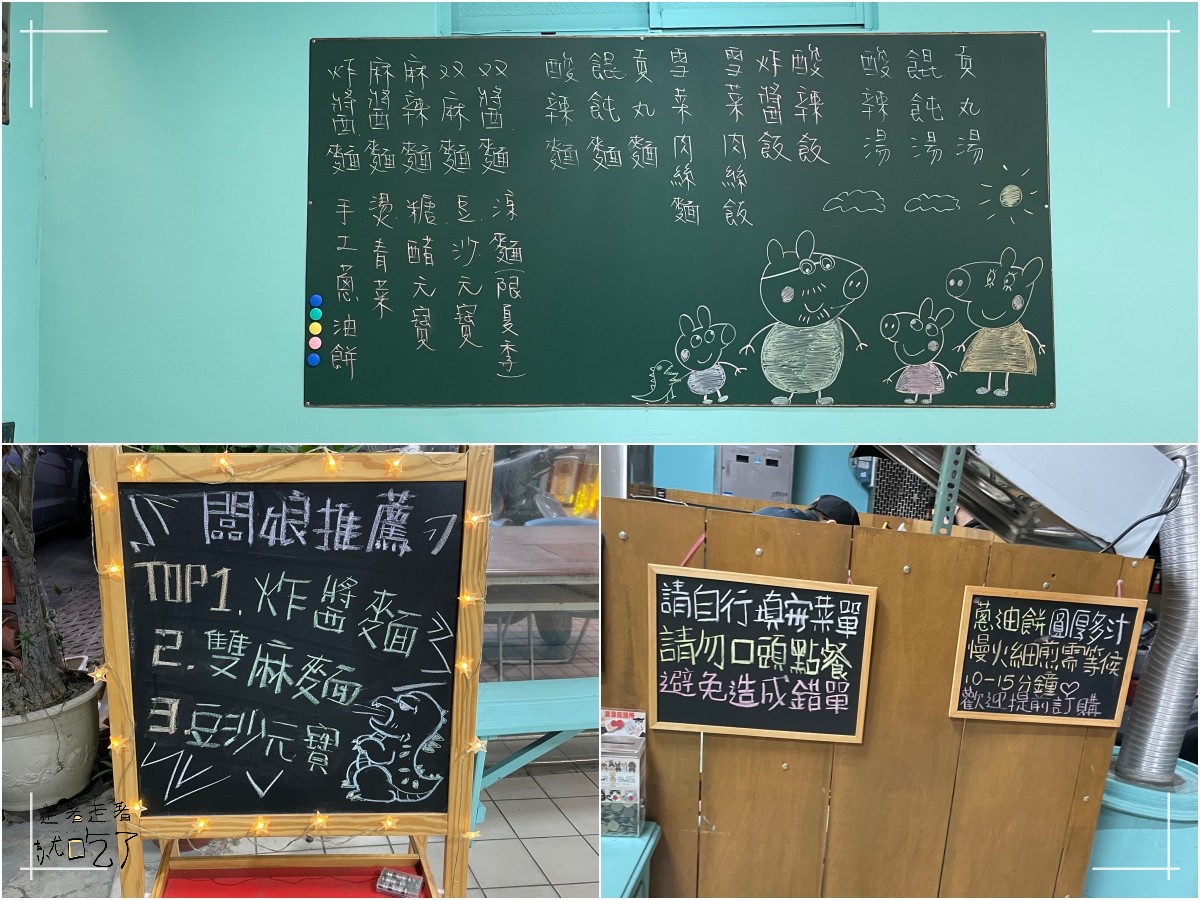 貢丸湯
餛飩湯
酸辣湯
酸辣飯
炸醬飯
雪菜肉絲飯
雪菜肉絲麵
貢丸麵
餛飩麵
酸辣麵
双醬麵
双麻麵
麻辣麵
麻醬麵
炸醬麵
涼麵(限夏季)
豆沙元寶
糖醋元寶
燙青菜
手工蔥油餅
闆娘推薦
TOP1. 炸醬麵
2. 雙麻麵
3 豆沙元寶
走著走著
就吃了
請自行填寫菜單
請勿口頭點餐
避免造成錯單
蔥油餅圓厚多汁
慢火細煎需等候
10-15分鐘♡
歡迎提前訂購